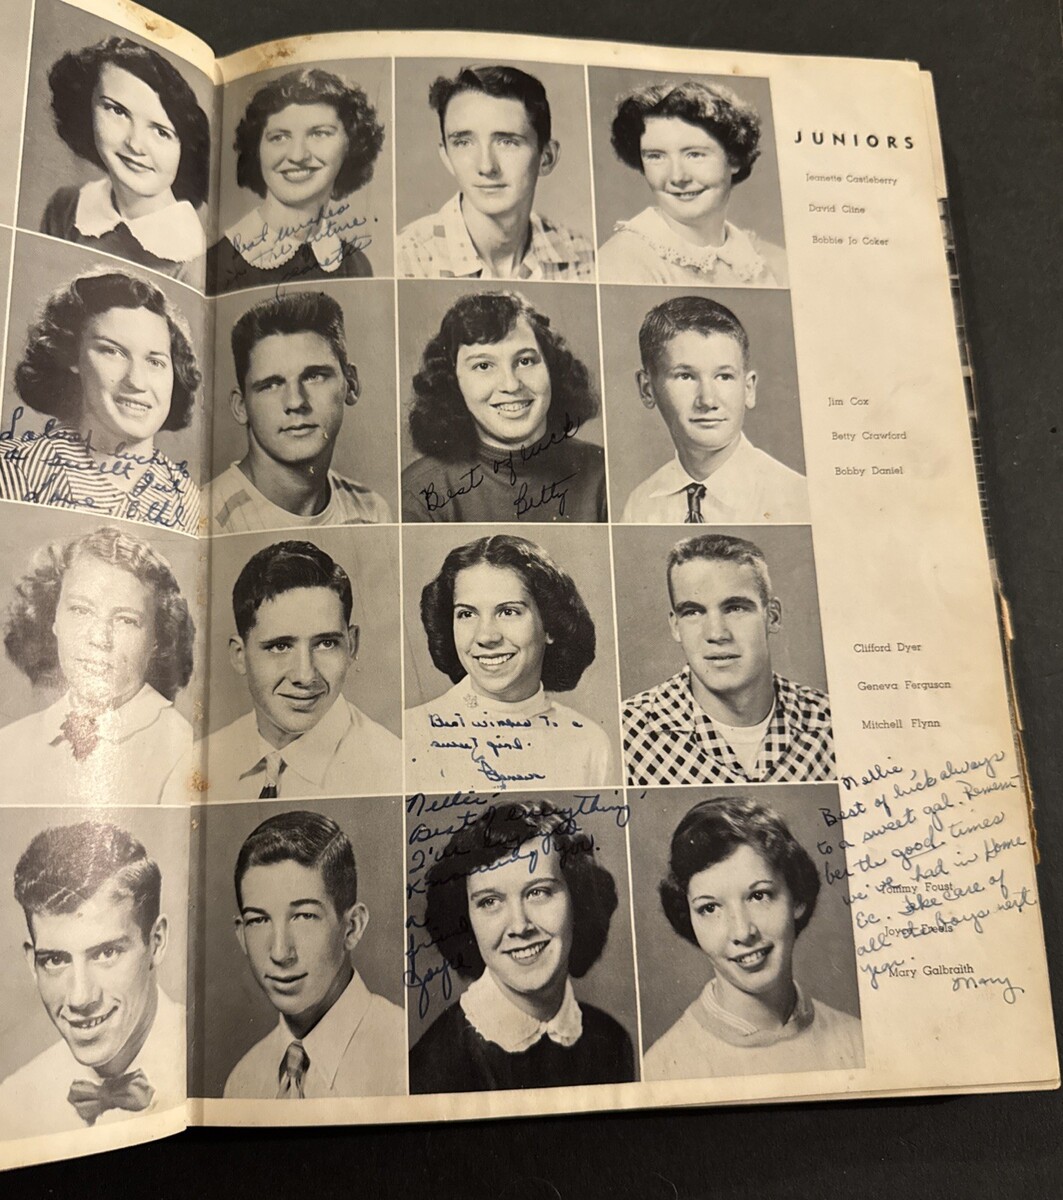 JUNIORS
Jeanette Castleberry
David Cline
Bobbie Jo Coker
Best wishes
in the future.
Jeanette
Jim Cox
Betty Crawford
Bobby Daniel
Lots of luck to
a swell gal
Love, Ethel
Best of luck
Betty
Clifford Dyer
Geneva Ferguson
Mitchell Flynn
Best wishes to a
sweet girl.
Geneva
Nellie,
Best of everything
I've enjoyed
knowing you!
a
friend
Joyce
Nellie,
Best of luck always
to a sweet gal. Remem-
ber the good times
we've had in Home
Ec. Take care of
all the Boys next
year.
Mary
Tommy Foust
Joyce
Mary Galbraith